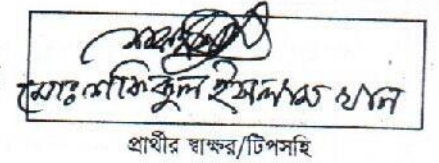 মোঃ শফিকুল ইসলাম খান
প্রার্থীর স্বাক্ষর/টিপসহি